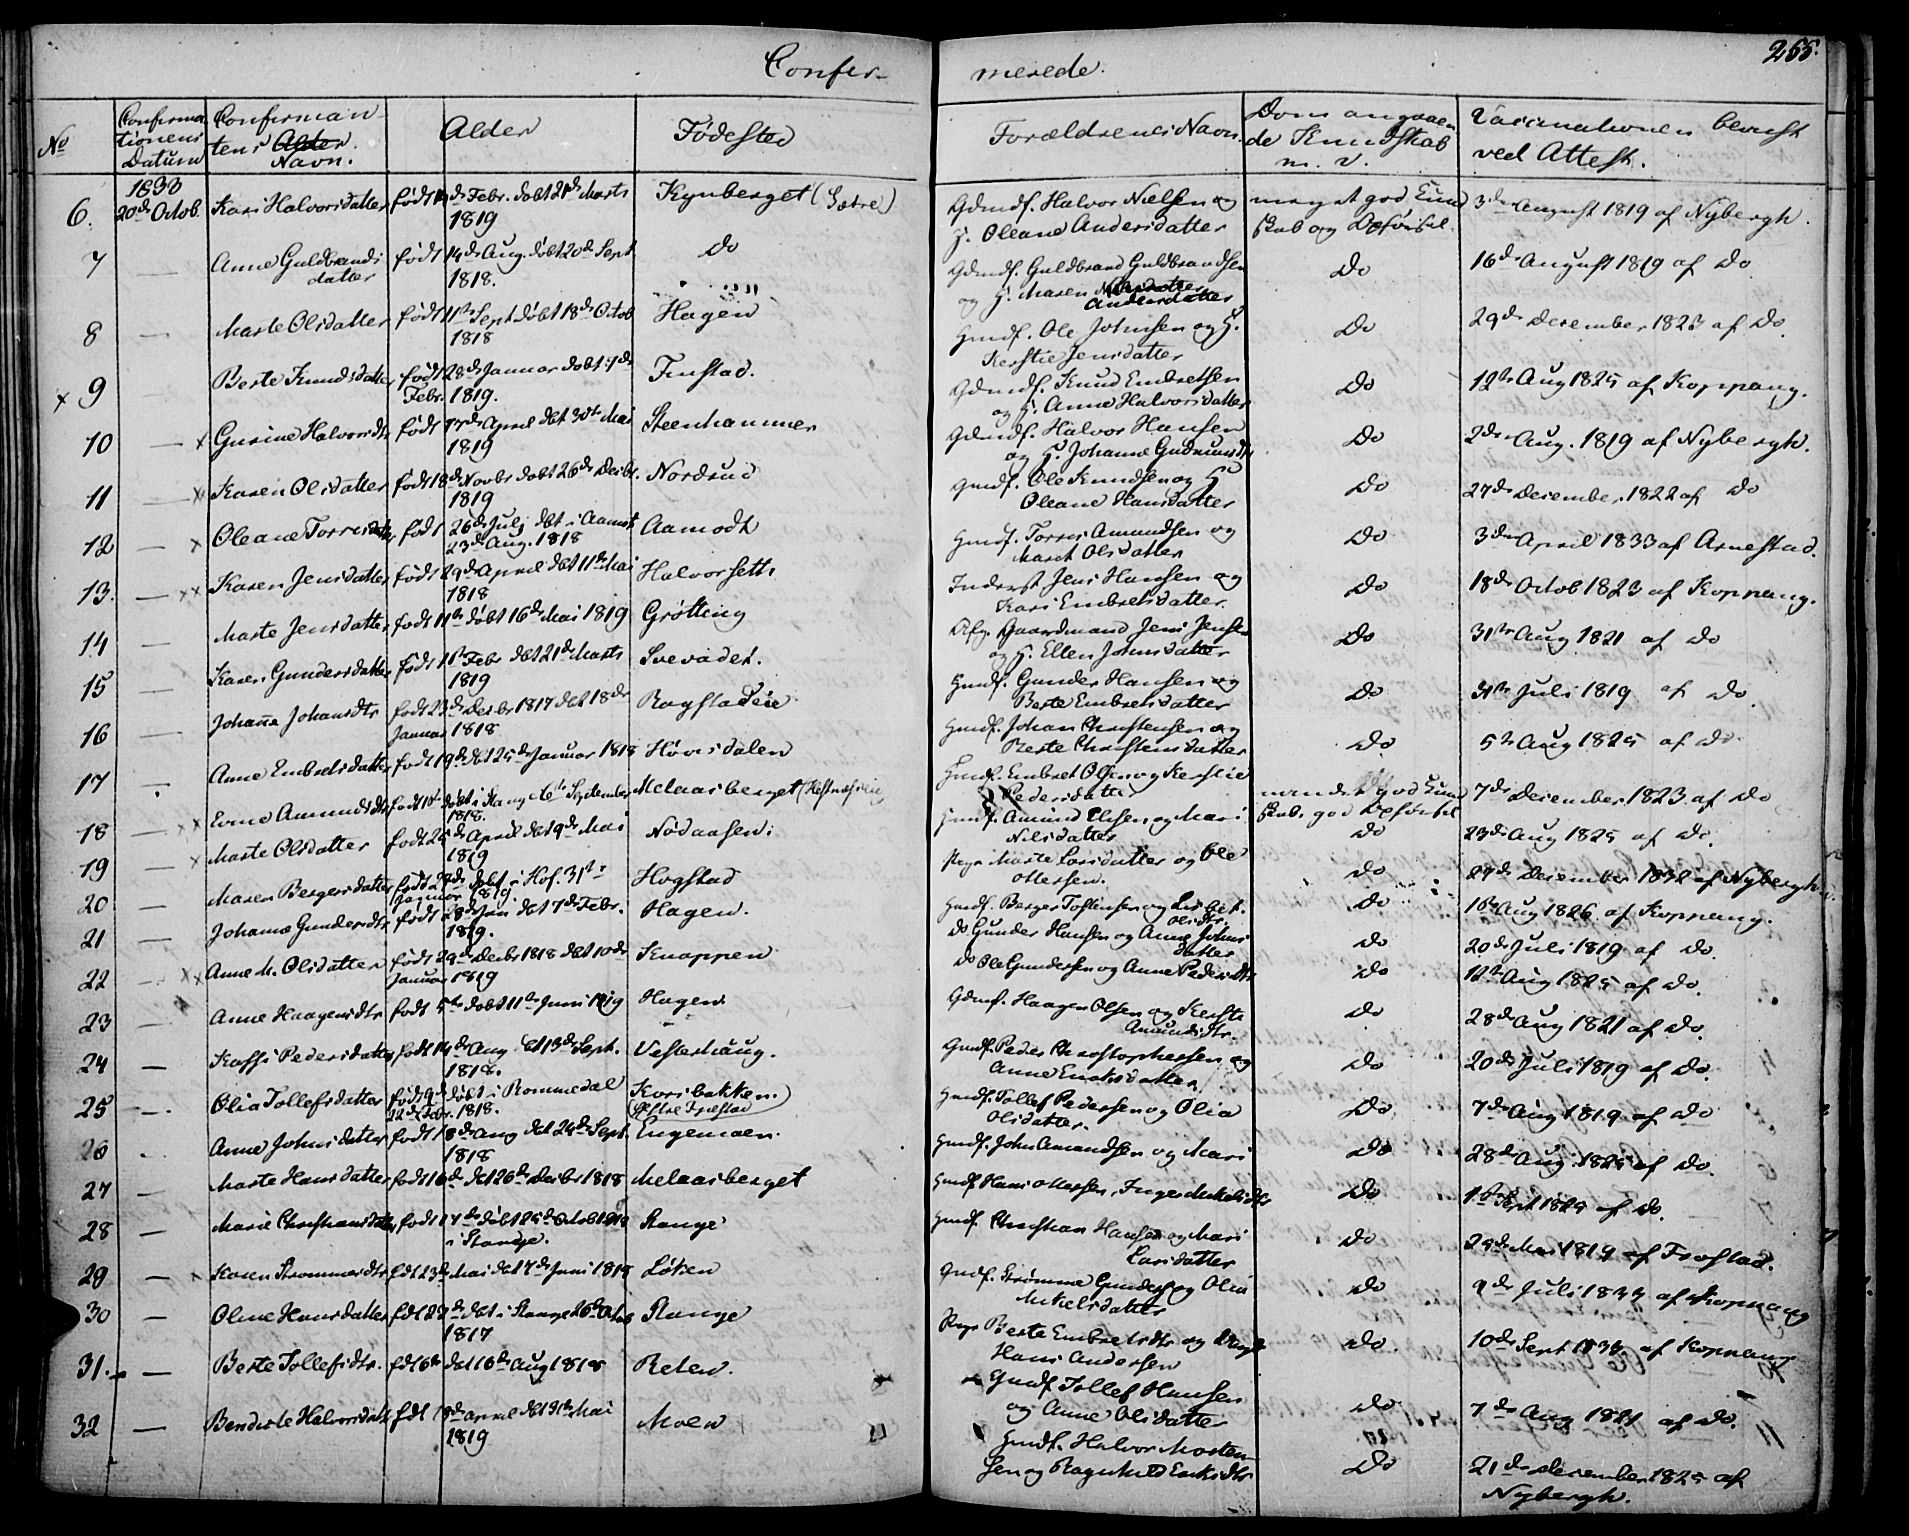 Confir- merede. 255.
No | Confirmationens Datum | Confirmantens Alder. Navn. | Alder | Fødested | Forældrenes Navn. | Dom angaaende Kundskab m. v. | Vaccinationen bevist ved Attest.
6. | 1833 20de Octob. | Kari Halvorsdatter | født de Febr. døbt 21de Marts 1819 | Kynberget (Sætre) | Gdmdf. Halvor Nielsen og H. Oleane Andersdatter | meget god Kundskab og Opførsel | 3de August 1819 af Nybergh.
7 | — | Anne Guldbrandsdatter | født 14de Aug. døbt 20de Sept 1818. | Do | Gdmdf. Guldbrand Guldbrandsen og H. Maren Andersdatter | Do | 16de August 1819 af Do
8 | — | Marte Olsdatter | født 11te Sept døbt 18de Octob 1818 | Hagen | Hmdf. Ole Johnsen og H. Kerstie Jensdatter | Do | 29de December 1823 af Do.
x 9 | Berte Knudsdatter | født 28de Januar døbt 7de Febr. 1819. | Finstad. | Gdmdf. Knud Embretsen og H. Anne Halvorsdatter | Do | 12te Aug 1825 af Koppang.
10 | — x | Gurine Halvorsdtr | født 17de April dbt 30te Mai 1819 | Steenhammer | Gdmdf. Halvor Hansen og H. Johanne Gudmundsdtr | Do | 2de Aug. 1819 af Nybergh.
11 | — x | Karen Olsdatter | født 18de Novbr døbt 26de Decbr. 1819 | Nordsud | Hmdf. Ole Knudsen og H Oleane Hansdatter | Do | 27de December 1822 af Do
12 | — x | Oleane Torresdatter | født 26de Juli dbt i Aamot 23de Aug. 1818 | Aamodt | Hmdf. Torres Amundsen og Maret Olsdatter | Do | 3die April 1833 af Arnestad.
13. | — xx | Karen Jensdatter | født 29de April dbt 11te Mai 1818 | Halvorseth | Inderst Jens Hansen og Kari Embretsdatter. | Do | 18de Octob 1823 af Koppang.
14 | — | Marte Jensdatter | født 11te døbt 16de Mai 1819 | Grøtting | Afg. Gaardmand Jens Jensen og H. Ellen Johnsdatter | Do | 31te Aug 1821 af Do
15 | — | Karen Gundersdatter | født 1ste Febr dbt 21de Marts 1819 | Svevadet. | Hmdf. Gunder Hansen og Berte Embretsdatter | Do | 31te Juli 1819 af Do.
16 | — | Johanne Johansdtr | født 23de Decbr 1817 dbt 18de Januar 1818 | Rogstadeie | Hmdf. Johan Christensen og Berte Christensdatter | Do | 5te Aug 1825 af Do.
17 | — | Anne Embretsdatter | født 19de dbt 25de Januar 1818 | Høvisdalen | Hmdf. Embret Olsen og Kerstie Pedersdatter | mindre god Kundskab. god Opførsel | 7de December 1823 af Do
18 | — xx | Amundsdtr | født døbt i Stang 6te September 1818. | Melaasberget | Hmdf. Amund Olsen og Mari Nilsdatter | Do | 23de Aug 1825 af Do.
19 | — x | Marte Olsdatter | født 25de April dbt 9de Mai 1819 | Nødaasen | Pige Marte Larsdatter og Ole Ottersen. | Do | 27de December 1832 af Nybergh
20 | — | Maren Bergersdatter | født 27de døbt i Hof. 31te Januar 1819 | Hogstad | Hmdf. Berger Tostensen og Lisbet Olsdtr. | Do | 16te Aug 1826 af Koppang.
21 | — | Johanne Gundersdtr | født 28de Jan dbt 7de Febr. 1819. | Hagen. | Do Gunder Hansen og Anne Johnsdatter | Do | 20de Juli 1819 af Do.
22 | — xx | Anne M. Olsdatter | født 29de Decbr 1818 dbt 10de Januar 1819 | Knappen | Do Ole Gundersen og Anne Pedersdtr | Do | 12te Aug 1825 af Do.
23 | — | Anne Haagensdtr | født 5te døbt 11te Juni 1819 | Hagen. | Gdmdf. Haagen Olsen og Kersti Amundsdtr. | Do | 28de Aug 1821 af Do.
24 | — | Pedersdatter | født 14de Aug dbt 13de Sept. 1818. | Vesterhaug. | Hmdf. Peder Christophersen og Anne Erichsdatter. | Do | 20de Juli 1819 af Do.
25 | — | Olia Tollefsdatter | født 9de døbt i Rommedal 22de Febr. 1818. | Korsbakken. | Hmdf. Tollef Pedersen og Olia Olsdatter. | Do | 7de Aug 1819 af Do
26 | Anne Johnsdatter | født 18de Aug dbt 24de Sept. 1818 | Engemoen. | Hmdf. John Amundsen og Mari | Do | 28de Aug 1825 af Do.
27 | — | Marte Hansdatter | født 16de dbt 26de Decbr 1818 | Melaasberget | Hmdf Hans Ottersen, Inger Mikelsdtr | Do | 1ste Sept 1825 af Do.
28 | — | Marie Christiansdatter | født 17de døbt 25de Octob 1818 i Stange. | Stange | Hmdf. Christian Hansen og Mari Larsdatter | Do | 25de Mai 1819 af Frostad.
29 | — x | Karen Strømmersdtr | fdt 23de Mai dbt 17de Juni 1818 | Løken | Gmdf. Strømme Gundersen og Olia Mikelsdatter | Do | 9de Juli 1833 af Kopnang
30 | — | Oline Hansdatter | fdt 22de dbt i Stange 26de Octob 1817 | Stange | Pige Berte Embretsdtr og Ungk Hans Andersen | Do. | 10de Sept 1833 af Kopnang
31. | — | Berte Tollefsdtr. | fdt 6te dbt 16de Aug 1818 | Reten. | Gmdf Tollef Hansen og Anne Olsdatter | Do | 7de Aug 1821 af Do.
32 | — | Bendicte Halvorsdatt | fdt 18de April dbt 31te Mai 1819 | Moen | Hmdf. Halvor Mortensen og Ragnhild Eriksdtr | Do | 21de December 1825 af Nybergh.